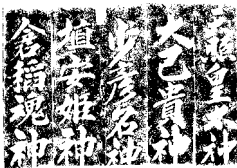 天照皇大神
大己貴神
少彦名神
埴安姫神
倉稲魂神